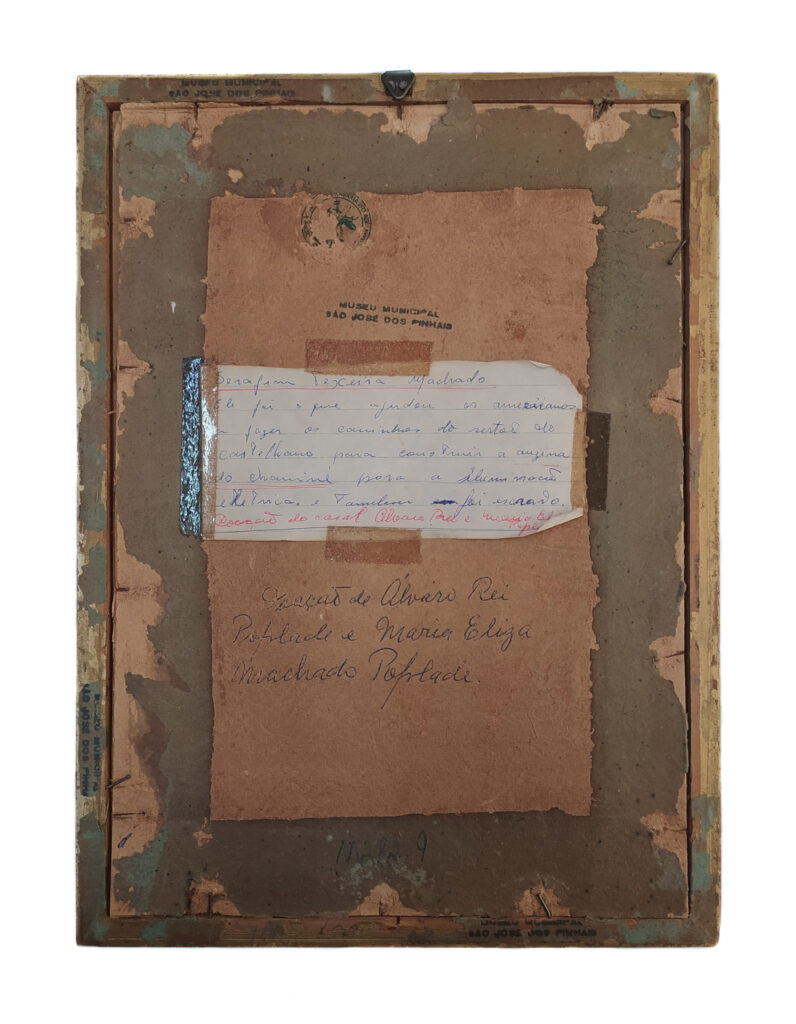 MUSEU MUNICIPAL
SÃO JOSÉ DOS PINHAIS
MUSEU MUNICIPAL
SÃO JOSÉ DOS PINHAIS
Serafim Texeira Machado
Ele foi o que ajudou os americanos
a fazer os caminhos do sertão do
castelhano para construir a
do chaminé para a
e foi
Doação do casal Alvaro Rei e
Doação de Álvaro Rei
Poplade e Maria Eliza
Machado Poplade.
MUSEU MUNICIPAL
SÃO JOSÉ DOS PINHAIS
MUSEU MUNICIPAL
SÃO JOSÉ DOS PINHAIS